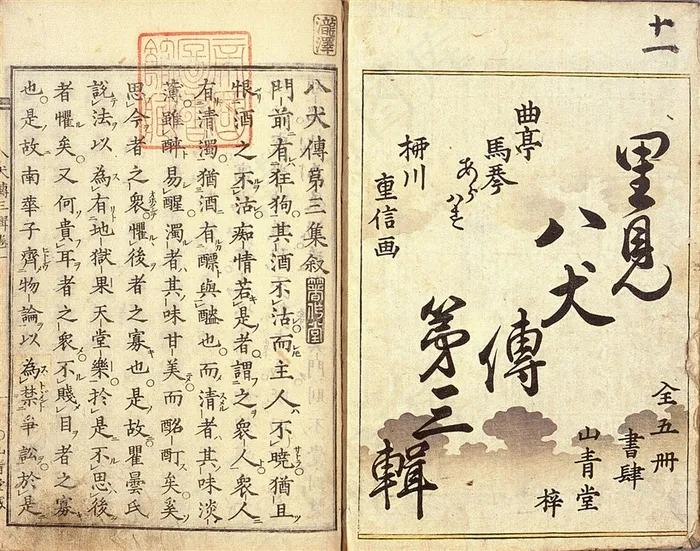 十一
里見
八犬
傳
第三
輯
曲亭
馬琴
あらはす
柳川
重信画
全五冊
書肆
山青堂
梓
瀧澤
八犬傳第三集敍
門前有狂狗其酒不沽而主人不曉猶且
恨酒之不沽痴情若是者謂之衆人衆人
有清濁猶酒有醥與醠也而清者其味淡
薄雖醉易醒濁者其味甘美而酩酊矣奚
思今者之衆懼後者之寡也是故瞿曇氏
說法以為有地獄果天堂樂於是不思後
者懼矣又何貴耳者之衆不賤目者之寡
也是故南華子齊物論以為禁爭訟於是
八犬傳三輯巻一
山青堂